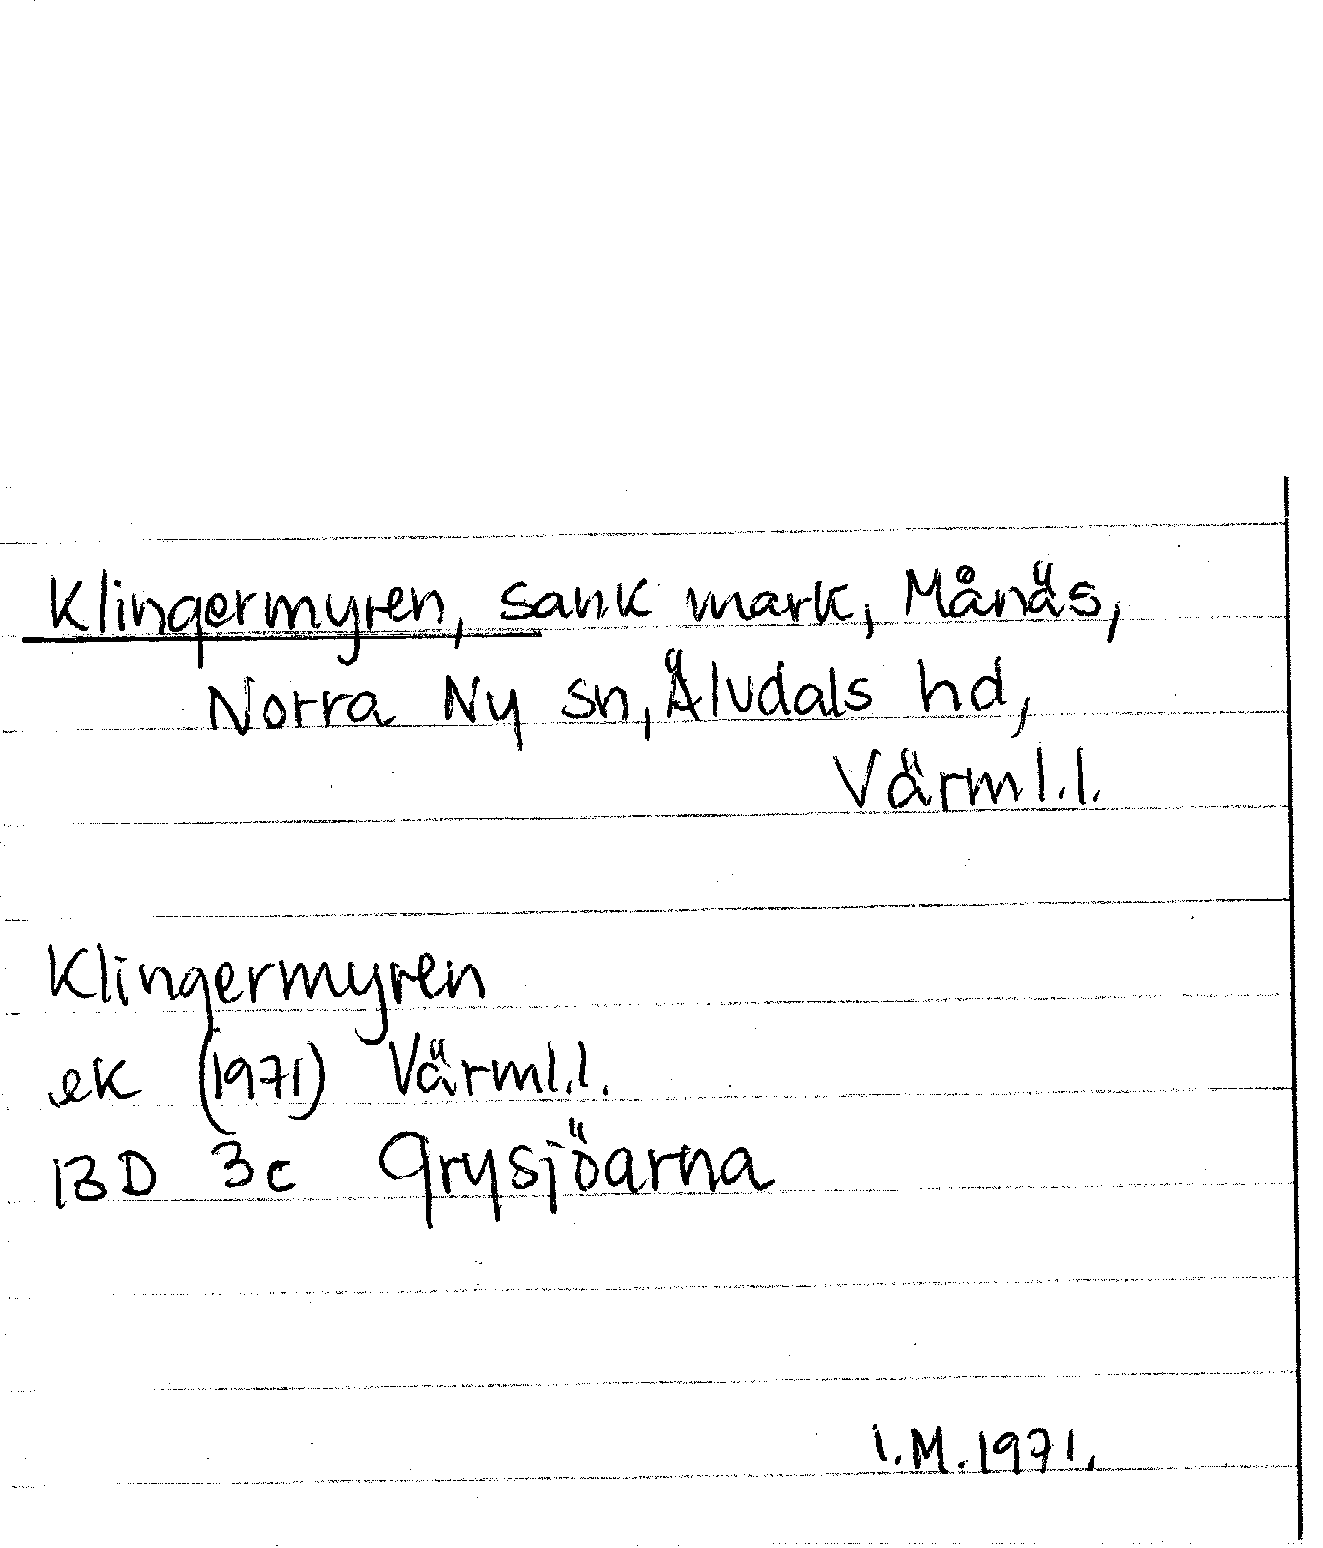 Klingermyren, sank mark, Månäs,
Norra Ny sn, Älvdals hd,
Värml.l.
Klingermyren
ek (1971) Värml.l.
13D 3c Grysjöarna
I.M.1971.